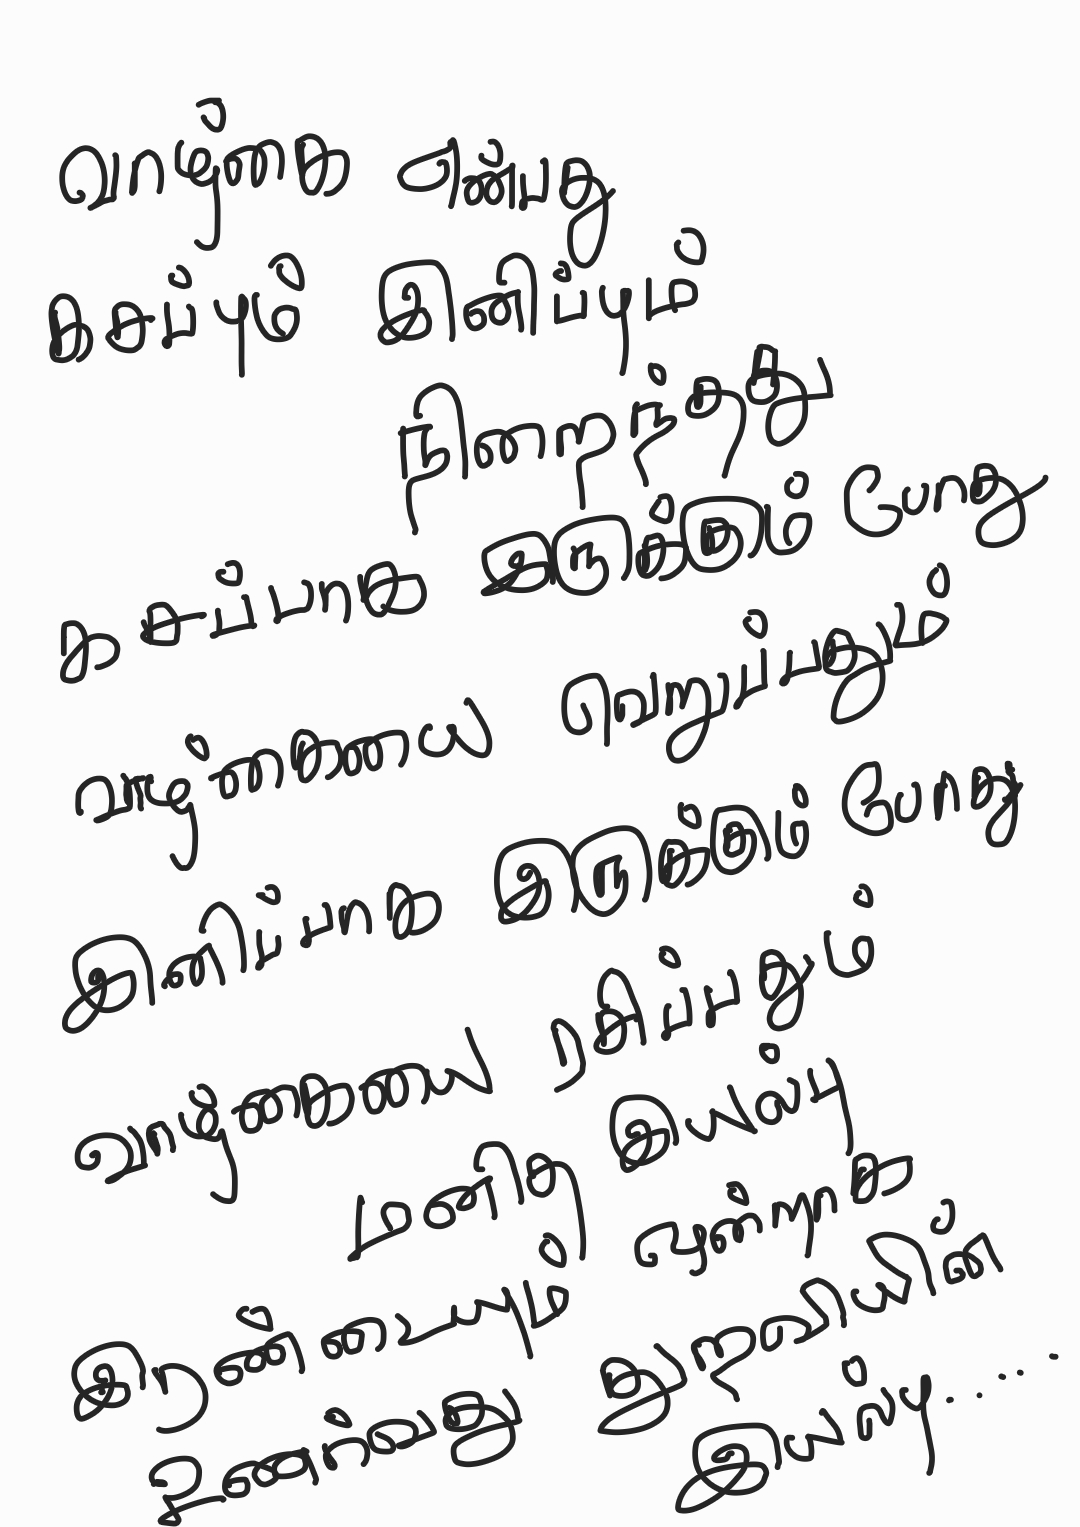 வாழ்கை என்பது
கசப்பும் இனிப்பும்
நிறைந்தது
கசப்பாக இருக்கும் போது
வாழ்கையை வெறுப்பதும்
இனிப்பாக இருக்கும் போது
வாழ்கையை ரசிப்பதும்
மனித இயல்பு
இரண்டையும் ஒன்றாக
உணர்வது துறவியின்
இயல்பு.......